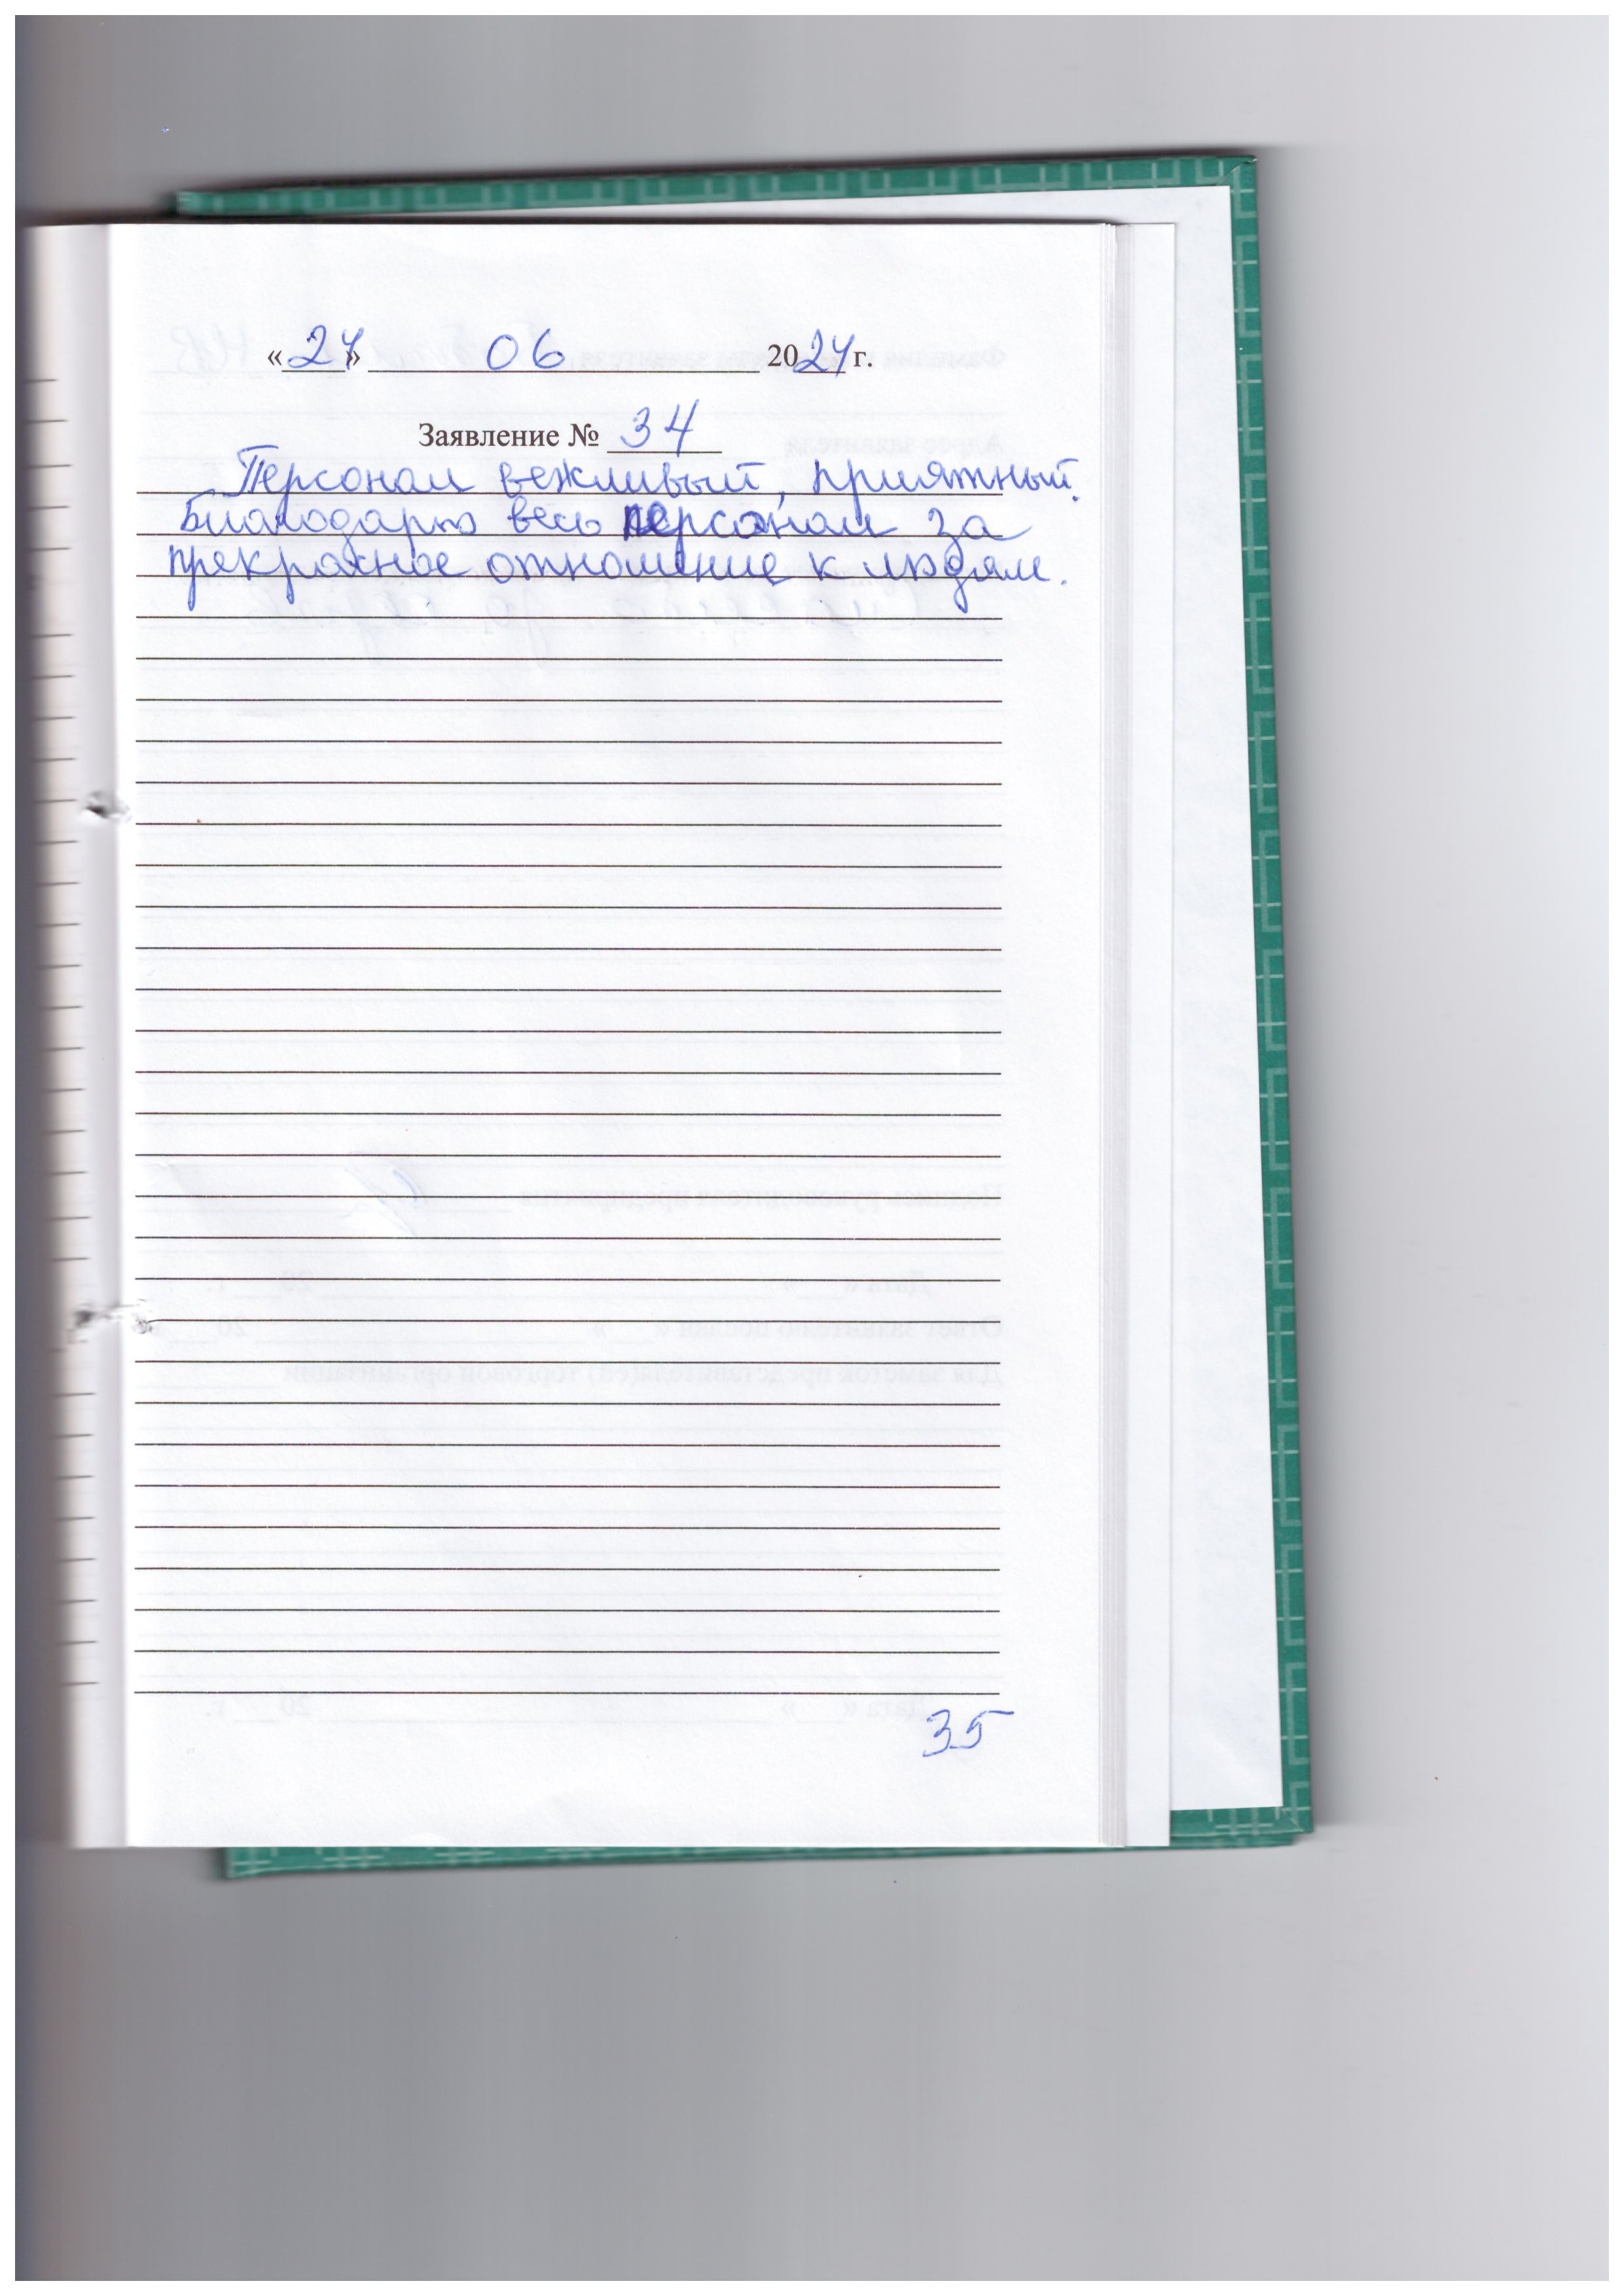 «24» 06 2024 г.
Заявление № 34
Персонал вежливый, приятный.
Благодарю весь персонал за
прекрасное отношение к людям.
35